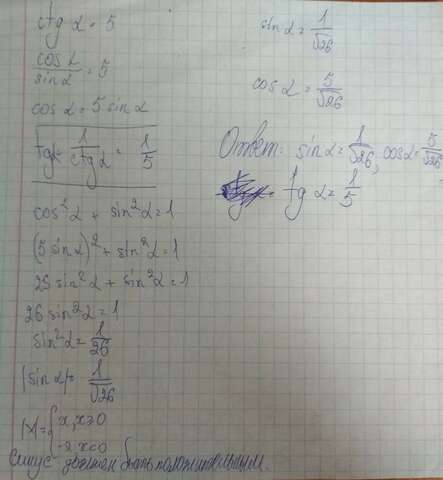 ctg α = 5
cos α / sin α = 5
cos α = 5 sin α
tgα = 1/ctg α = 1/5
cos²α + sin²α = 1
(5 sin α)² + sin²α = 1
25 sin²α + sin²α = 1
26 sin²α = 1
sin²α = 1/26
|sin α| = 1/√26
|x| = { x, x≥0
-x, x<0
Синус должен быть положительным.
sin α = 1/√26
cos α = 5/√26
Ответ: sin α = 1/√26, cos α = 5/√26
tg α = 1/5